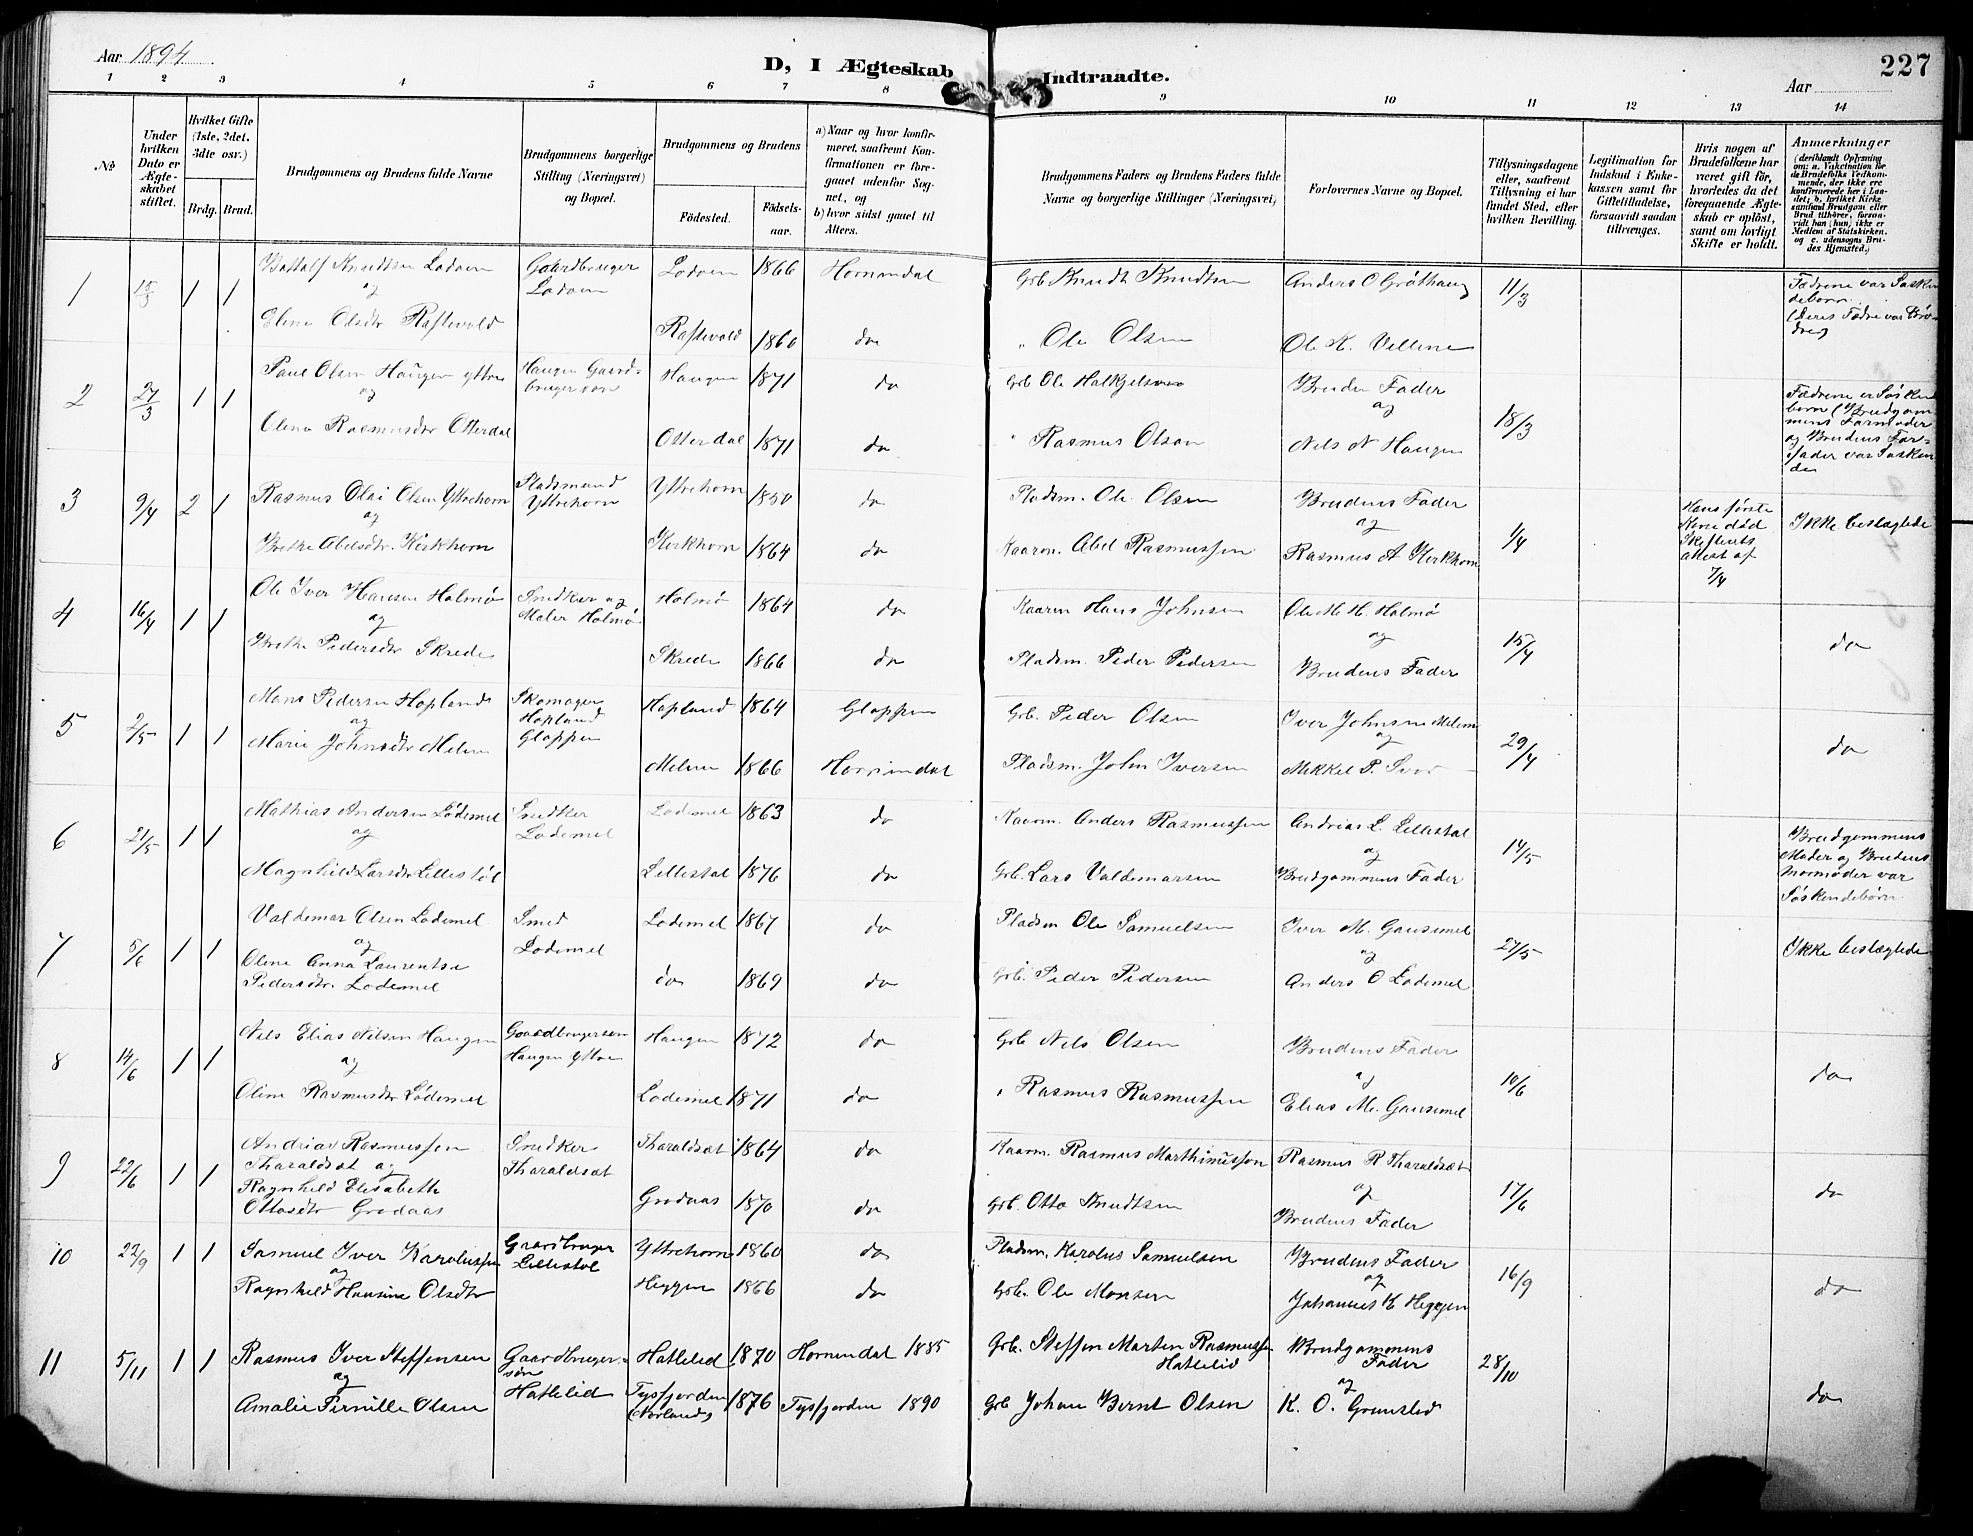 Aar 1894
D, I Ægteskab Indtraadte.
227
Aar
1 2 3 4 5 6 7 8 9 10 11 12 13 14
No
Under hvilken Dato er Ægteskabet stiftet.
Hvilket Gifte (1ste, 2det, 3dte osv.)
Brdg. Brud.
Brudgommens og Brudens fulde Navne
Brudgommens borgerlige Stilling (Næringsvei) og Bopæl.
Brudgommens og Brudens
Fødested.
Fødselsaar.
a) Naar og hvor konfirmeret, saafremt Konfirmationen er foregaaet udenfor Sognet, og
b) hvor sidst gaaet til Alters.
Brudgommens Faders og Brudens Faders fulde Navne og borgerlige Stillinger (Næringsvei)
Forlovernes Navne og Bopæl.
Tillysningsdagene eller, saafremt Tillysning ei har fundet Sted, efter hvilken Bevilling.
Legitimation for Indskud i Enkekassen samt for Giftetilladelse, forsaavidt saadan tiltrænges.
Hvis nogen af Brudefolkene har været gift før, hvorledes da det foregaaende Ægteskab er opløst, samt om lovligt Skifte er holdt.
Anmærkninger
(deriblandt Oplysning om: a. Vakcination for de Brudefolks Vedkommende, der ikke ere konfirmerede her i Landet; b. hvilket Kirkesamfund Brudgom eller Brud tilhører, forsaavidt han (hun) ikke er Medlem af Statskirken, og c. udensogns Brudes Hjemsted.)
1 15/3 1 1 Knudtsen Lodøen Gaardbruger Lodøen 1866 Hornindal Grb Knudt Knudtsen Anders O Grøthaug 11/3 Fædrene var Søskendebørn
og
Elena Olsdtr Raftevold Raftevold 1860 do " Ole Olsen Ole K.
(Deres Fædre var Brødre)
2 27/3 1 1 Paul Olsen Haugen yttre Haugen Gaardbrugersøn Haugen 1871 do Grb Ole Brudens Fader 18/3 Fædrene er Søskendebørn (Brudgommens Farmoder og Brudens Farfader var Søskende
og og
Olina Rasmusdtr Otterdal Otterdal 1871 do " Rasmus Olsen Nils N Haugen
3 9/4 2 1 Rasmus Olai Olsen Yttrehorn Pladsmand Yttrehorn Yttrehorn 1850 do Pladsm. Ole Olsen Brudens Fader 1/4 Hans første Kone død Skifterets attest af 7/4 Ikke beslægtede
og og
Brithe Abelsdtr. Kirkhorn Kirkhorn 1864 do Kaarm. Abel Rasmussen Rasmus A Kirkhorn
4 16/4 1 1 Ole Iver Hansen Holmø Snedker og Maler Holmø Holmø 1864 do Kaarm Hans Johnsen Ole M. H. Holmø 15/4 do
og og
Brithe Pedersdtr Skrede Skrede 1866 do Pladsm. Peder Pedersen Brudens Fader
5 2/5 1 1 Mons Pedersen Hopland Skomager Hopland Gloppen Hopland 1864 Gloppen Grb. Peder Olsen Iver Johnsen Melem 29/4 do
og og
Marie Johnsdtr Melem Melem 1866 Hornindal Pladsm. John Iversen Mikkel P. Svor
6 21/5 1 1 Mathias Andersen Lødemel Snedker Lødemel Lodemel 1863 do Kaarm. Anders Rasmussen Andrias L. Lillestøl 14/5 Brudgommens Moder og Brudens Mormoder var Søskendebørn
og og
Magnhild Larsdtr Lillestøl Lillestøl 1876 do Grb. Lars Valdemarsen Brudgommens Fader
7 5/6 1 1 Valdemar Olsen Lødemel Smed Lodemel Lodemel 1867 do Pladsm Ole Samuelsen Iver M. Gausemel 27/5 Ikke beslægtede
og og
Oline Anna Laurentse Pedersdtr. Lødemel do 1869 do Grb. Peder Pedersen Anders O Lødemel
8 14/6 1 1 Nils Elias Nilsen Haugen Gaardbrugersøn Haugen Yttre Haugen 1872 do Grb Nils Olsen Brudens Fader 10/6 do
og og
Oline Rasmusdtr Lødemel Lodemel 1871 do " Rasmus Rasmussen Elias M. Gausemel
9 22/6 1 1 Andrias Rasmussen Tharaldsæt og Snedker Tharaldsæt Tharaldsæt 1864 do Kaarm. Rasmus Marthinussøn Rasmus R Tharaldsæt 17/6 do
og
Ragnhild Elisabeth Ottosdtr Grodaas Grodaas 1870 do Grb. Otto Knudtsen Brudens Fader
10 22/9 1 1 Samuel Iver Karolussen Gaardbruger Lillestøl Yttrehorn 1860 do Pladsm. Karolus Samuelsen Brudens Fader 16/9 do
og og
Ragnhild Hansine Olsdtr Heggen 1866 do Grb. Ole Monsen Johannes K Heggen
11 5/11 1 1 Rasmus Iver Steffensen Gaardbrugersøn Hatlelid Hatlelid 1870 Hornindal 1885 Grb. Steffen Marten Rasmussen Hatlelid Brudgommens Fader 28/10 do
og og
Amalie Pernille Olsen Tysfjorden (Norland) 1876 Tysfjorden 1890 Grb Johan Bernt Olsen K. O. Grimslid